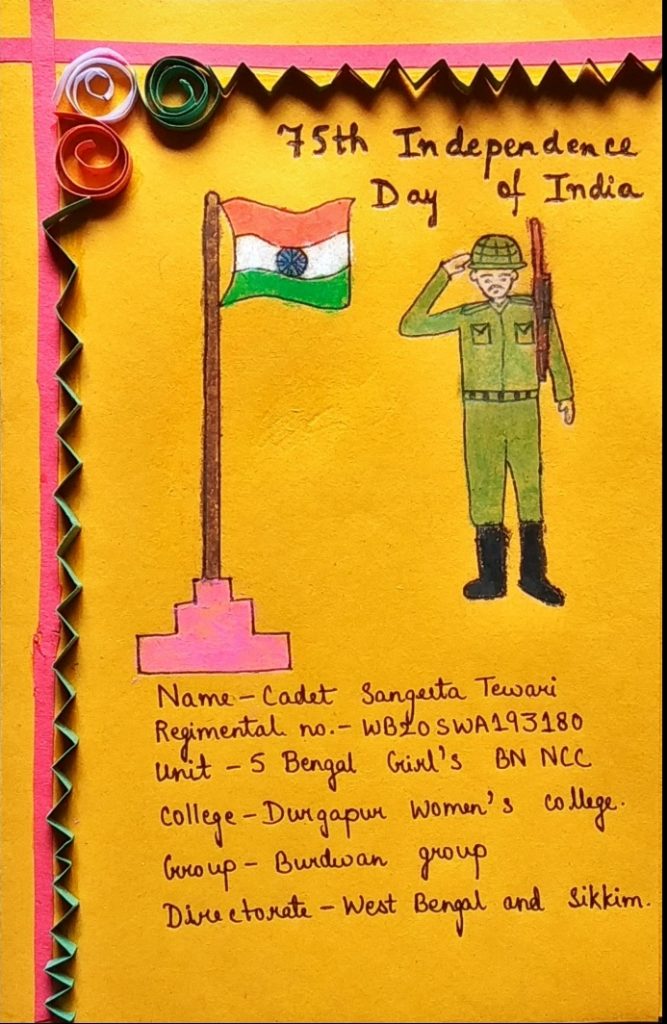 75th Independence
Day of India
Name - Cadet Sangeeta Tewari
Regimental no. - WB20SWA193180
Unit - 5 Bengal Girl's BN NCC
College - Durgapur Women's college.
Group - Burdwan group
Directorate - West Bengal and Sikkim.